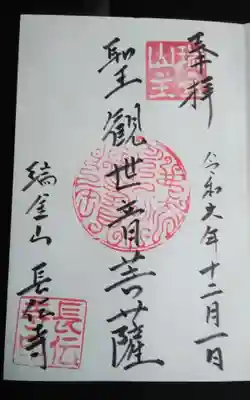 奉拝
令和六年十二月一日
聖観世音菩薩
瑞金山
長伝寺